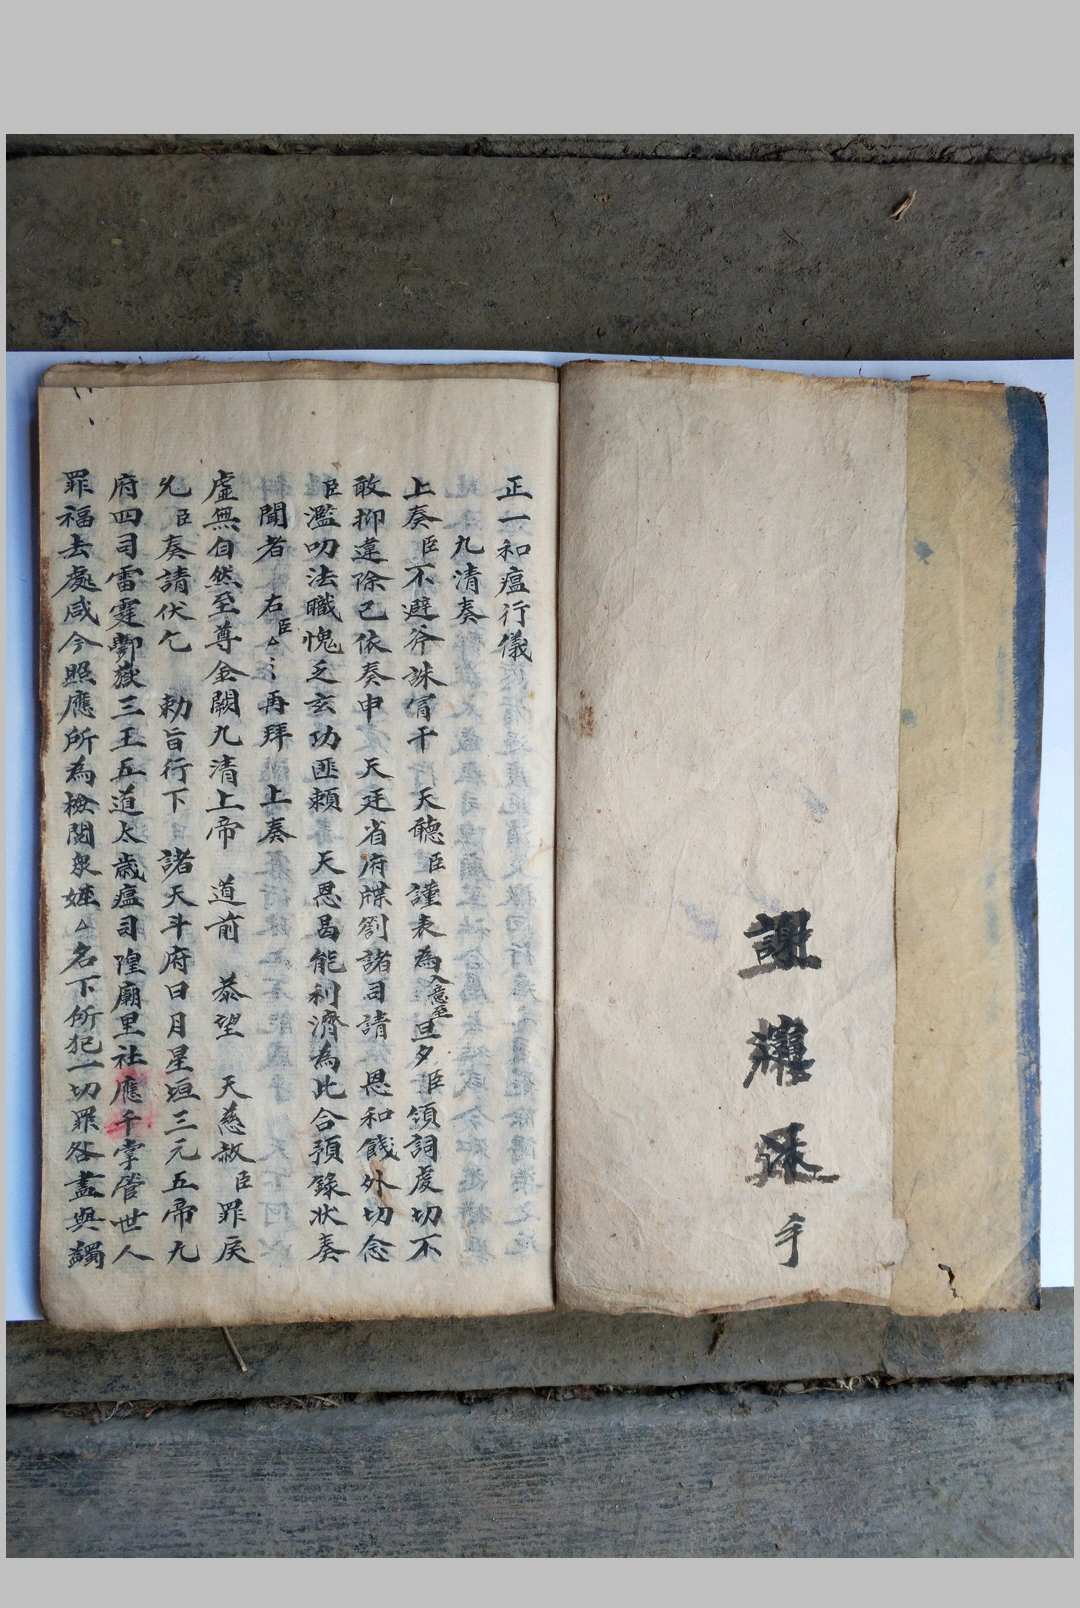 謝
手
正一和瘟行儀
九清奏
上奏臣不避斧誅冒干 天聽臣謹表為入意至旦夕臣領詞虔切不
敢抑違除已依奏申天廷省府牒劄諸司請恩和餞外切念
臣濫叨法職愧乏玄功匪賴 天恩曷能利濟為此合預錄狀奏
聞者 右臣厶再拜 上奏
虛無自然至尊金闕九清上帝 道前 恭望 天慈赦臣罪戾
允臣奏請伏乞 勅旨行下 諸天斗府日月星垣三元五帝九
府四司雷霆酆嶽三王五道太歲瘟司隍廟里社應千掌管世人
罪福去處咸令照應所為檢閱衆姓厶名下所犯一切罪咎盡與蠲